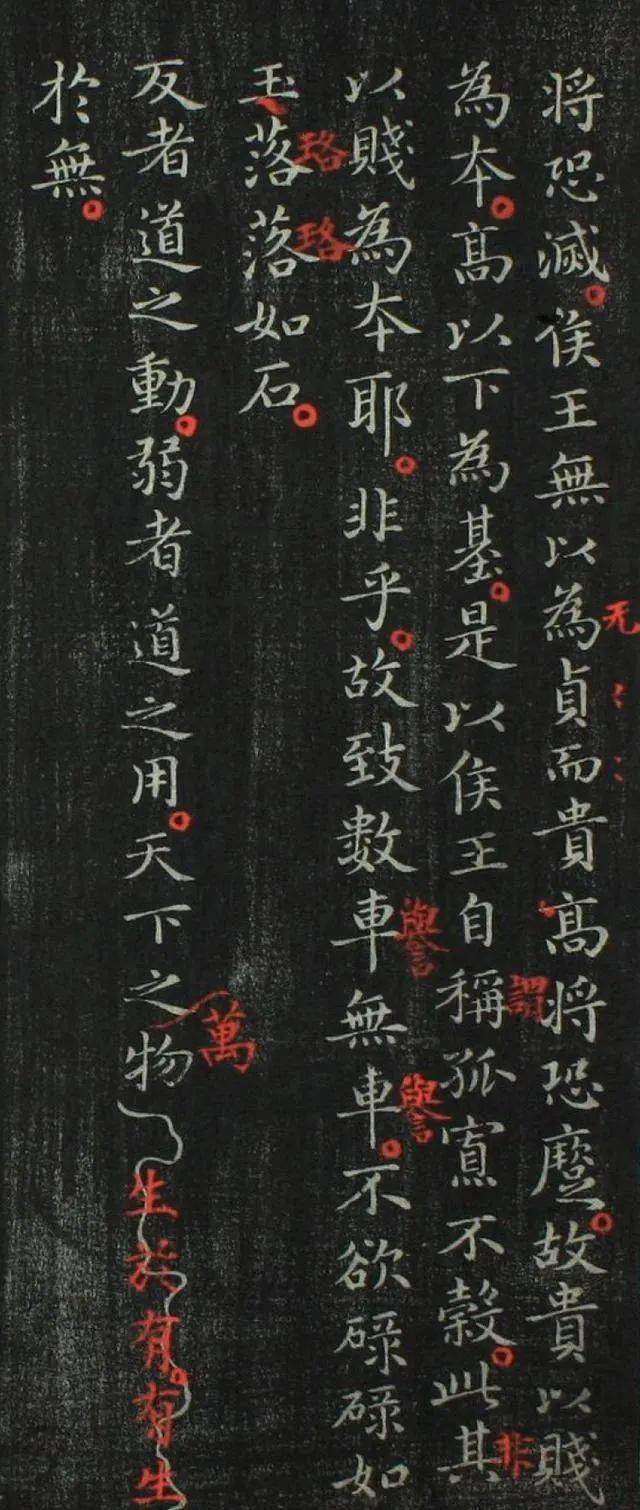 将恐滅。侯王無以為貞而貴髙将恐蹷。故貴以賤
无
為本。髙以下為基。是以侯王自稱孤寡不穀。此其
謂
非
以賤為本耶。非乎。故致數車無車。不欲碌碌如
譽
譽
玉落落如石。
珞
珞
反者道之動。弱者道之用。天下之物
萬
生於有。有生
於無。